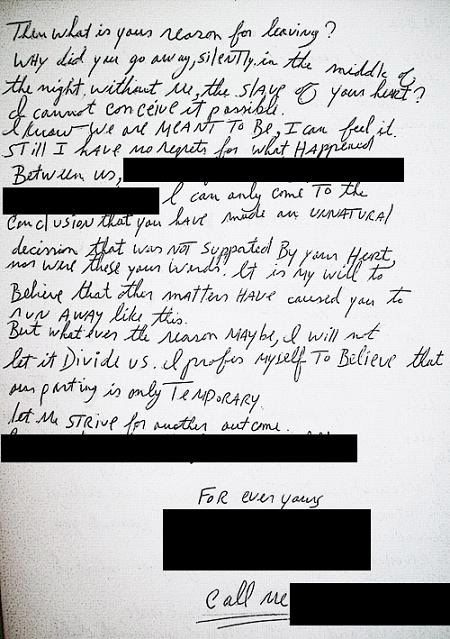 Then what is your reason for leaving?
Why did you go away, silently, in the middle of
the night, without me, the slave of your heart?
I cannot conceive it possible.
I know we are MEANT TO Be, I can feel it.
Still I have no regrets for what Happened
Between us,
I can only come To the
Conclusion that you have made an UNNATURAL
decision that was NOT supported By your Heart,
nor were these your words. It is my will to
Believe that other matters HAVE caused you to
run AWAY like this.
But what ever the reason MAYbe, I will not
let it Divide us. I prefer myself To Believe that
our parting is only TEMPORARY.
let Me STRIVE for another outcome.
FOR ever yours
Call me